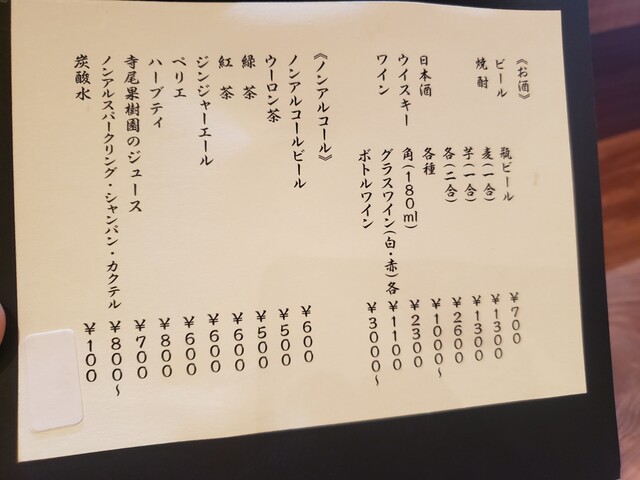 《お酒》
ビール 瓶ビール ¥700
焼酎 麦(一合) ¥1300
芋(一合) ¥1300
各(二合) ¥2600
日本酒 各種 ¥1000~
ウイスキー 角(180ml) ¥2300
ワイン グラスワイン(白・赤)各 ¥1100
ボトルワイン ¥3000~
《ノンアルコール》
ノンアルコールビール ¥600
ウーロン茶 ¥500
緑 茶 ¥500
紅 茶 ¥600
ジンジャーエール ¥600
ペリエ ¥600
ハーブティ ¥800
寺尾果樹園のジュース ¥700
ノンアルスパークリング・シャンパン・カクテル ¥800~
炭酸水 ¥100